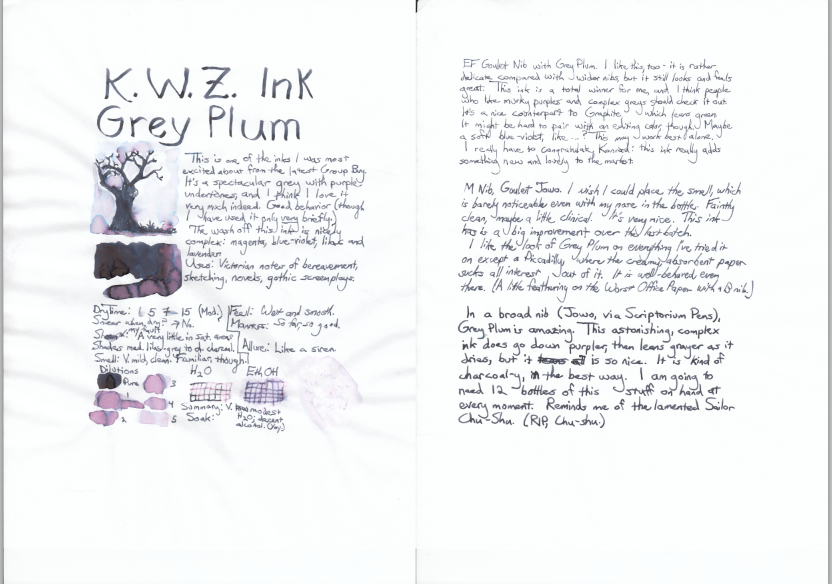 K.W.Z. Ink
Grey Plum
This is one of the inks I was most
excited about from the latest Group Buy.
It's a spectacular grey with purple
undertones, and I think I love it
very much indeed. Good behavior (though
I have used it only very briefly).
The wash off this ink is nicely
complex: magenta, blue-violet, lilac and
lavender.
Uses: Victorian notes of bereavement,
sketching, novels, gothic screenplays.
Dry time: 1 5 7 15 (Mod.)
Smear when dry? → No.
A very little in spots
Shades med. lilac-grey to dk. charcoal.
Smell: V. mild, clean. Familiar though!
Feel: Wet and smooth.
Manners: So far so good.
Allure: Like a siren
Dilutions
H2O
EtOH
Pure
3
1
4
2
5
Summary: V. modest
H2O; decent
alcohol.
Soak:
EF Goulet Nib with Grey Plum. I like this, too - it is rather
delicate compared with wider nibs, but it still looks and feels
great. This ink is a total winner for me, and I think people
who like murky purples and complex greys should check it out.
It's a nice counterpart to Graphite, which leans green.
It might be hard to pair with an editing color, though. Maybe
a soft blue-violet, like...? This may work best alone.
I really have to congratulate Konrad: this ink really adds
something new and lovely to the market.
M Nib, Goulet Jowo. I wish I could place the smell, which
is barely noticeable even with my nose in the bottle. Faintly
clean, maybe a little clinical. It's very nice. This ink
is a big improvement over the last batch.
I like the look of Grey Plum on everything I've tried it
on except a Picadilly, where the creamy, absorbent paper
sucks all interest out of it. It is well-behaved even
there. (A little feathering on the Worst Office Paper with a B nib.)
In a broad nib (Jowo, via Scriptorium Pens),
Grey Plum is amazing. This astonishing, complex
ink does go down purpler, then leans grayer as it
dries, but it is so nice. It is kind of
charcoal-y, in the best way. I am going to
need 12 bottles of this stuff on hand at
every moment. Reminds me of the lamented Sailor
Chu-Shu. (RIP, Chu-shu.)